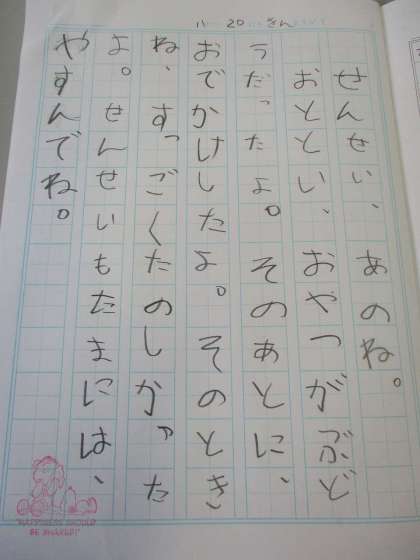 11 20 きん
せんせい、あのね。
おととい、おやつがぶど
うだったよ。そのあとに、
おでかけしたよ。そのとき
ね、すっごくたのしかった
よ。せんせいもたまには、
やすんでね。
"HAPPINESS SHOULD
BE SHARED!"